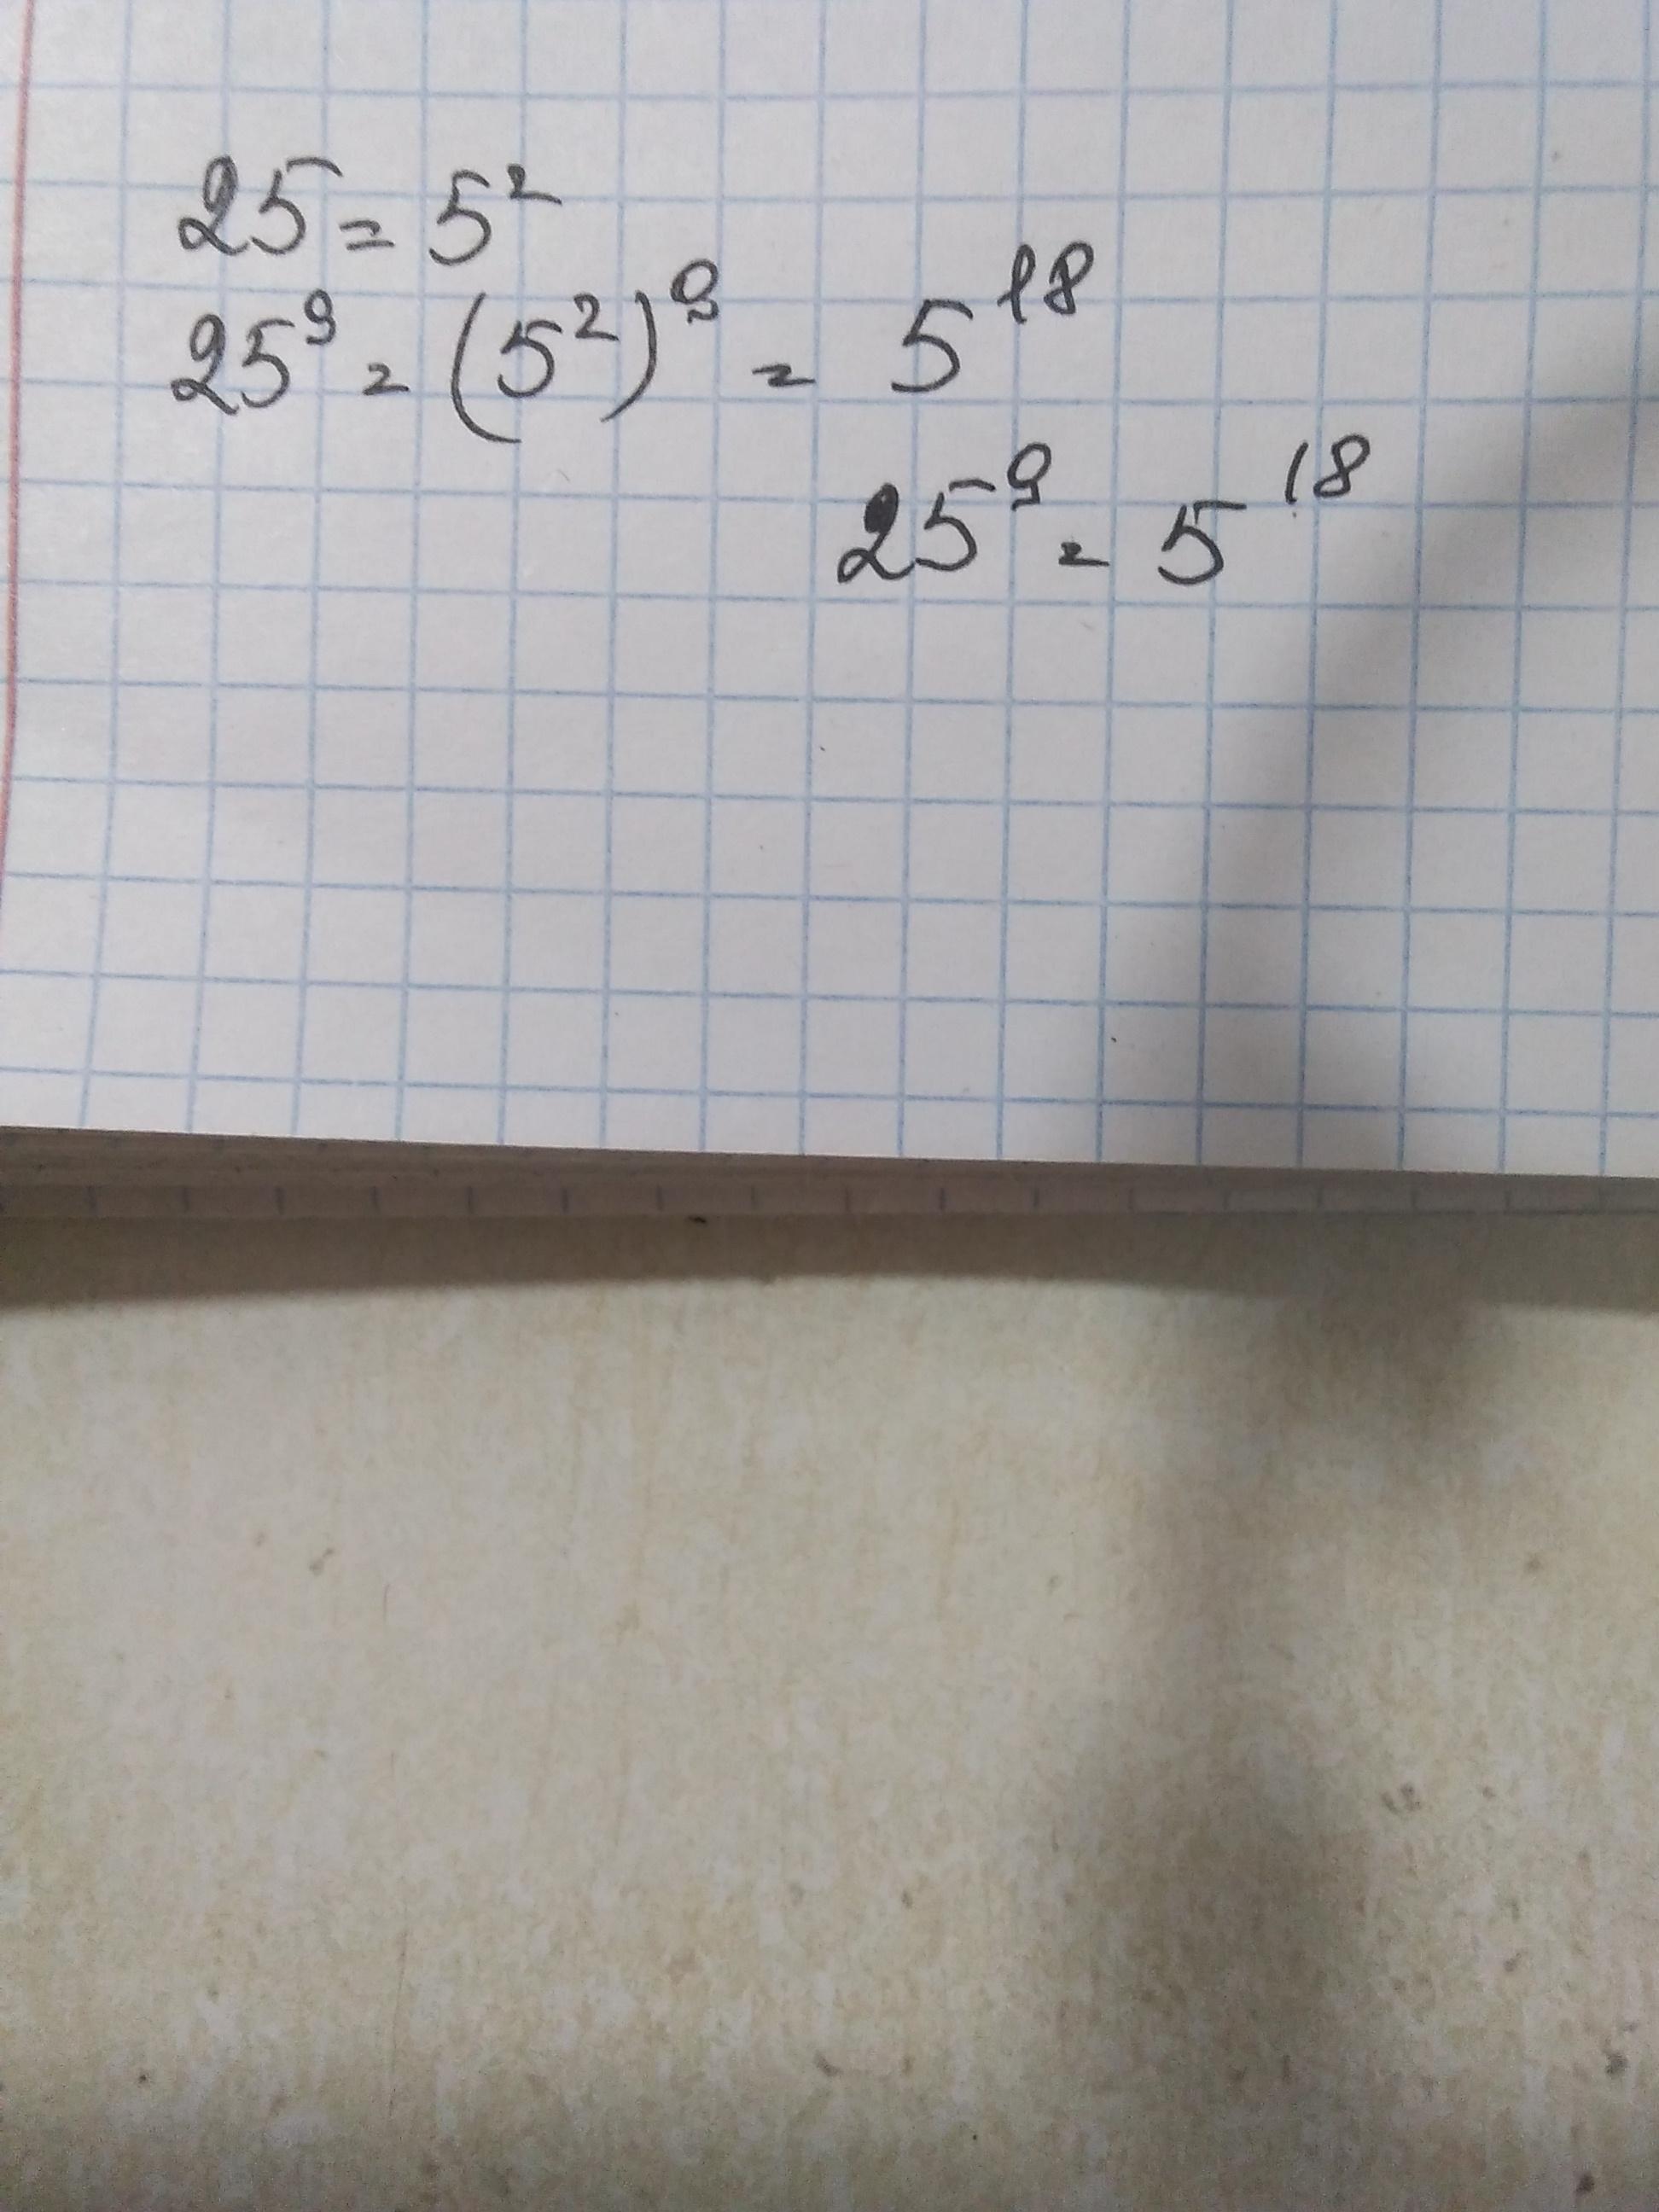 25 = 5²
25⁹ = (5²)⁹ = 5¹⁸
25⁹ = 5¹⁸